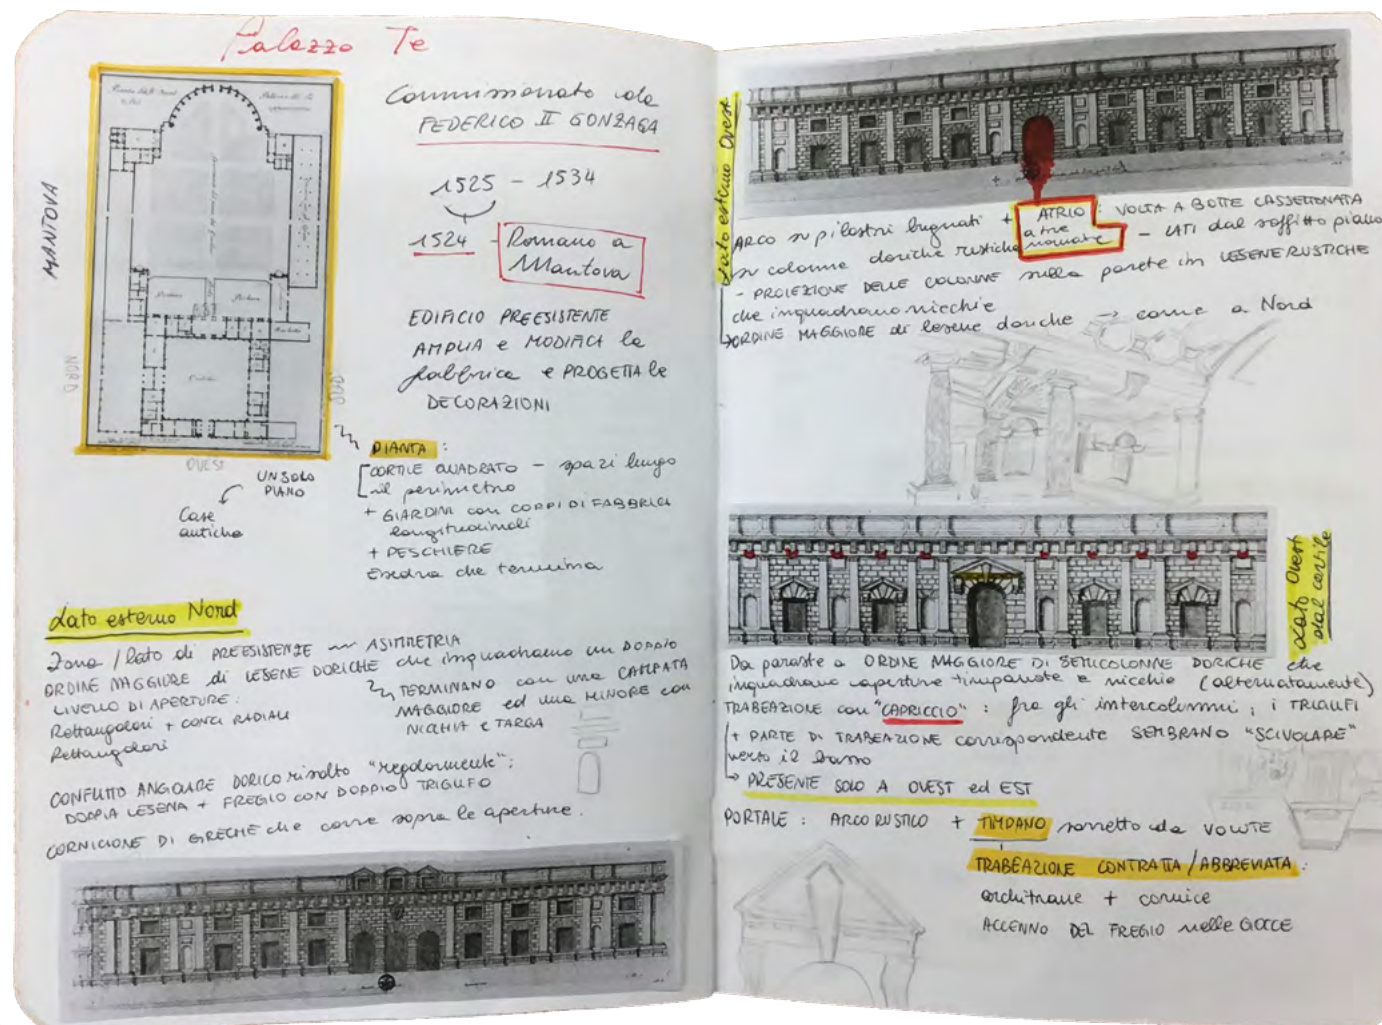 Palazzo Te
MANTOVA
NORD
SUD
OVEST
Commissionato da
FEDERICO II GONZAGA
1525 - 1534
1524 - Romano a
Mantova
EDIFICIO PREESISTENTE
AMPLIA e MODIFICA la
fabbrica e PROGETTA le
DECORAZIONI
UN SOLO
PIANO
Case
antiche
PIANTA :
CORTILE QUADRATO - spazi lungo
il perimetro
+ GIARDINI con CORPI DI FABBRICA
longitudinali
+ PESCHIERE
Esedra che termina
Lato esterno Nord
Zona / Lato di PREESISTENZE ASIMMETRIA
ORDINE MAGGIORE di LESENE DORICHE che inquadrano un DOPPIO
LIVELLO DI APERTURE :
Rettangolari + CONCI RADIALI
Rettangolari
TERMINANO con una CAMPATA
MAGGIORE ed una MINORE con
NICCHIA e TARGA
CONFLITTO ANGOLARE DORICO risolto "regolarmente" :
DOPPIA LESENA + FREGIO CON DOPPIO TRIGLIFO
CORNICIONE DI GRECHE che corre sopra le aperture.
Lato esterno Ovest
ARCO su pilastri bugnati + ATRIO : VOLTA A BOTTE CASSETTONATA
a tre
navate
su colonne doriche rustiche - LATI dal soffitto piano
- PROIEZIONE DELLE COLONNE sulla parete in LESENE RUSTICHE
che inquadrano nicchie
ORDINE MAGGIORE di lesene doriche → come a Nord
Lato Ovest
dal cortile
Da paraste a ORDINE MAGGIORE DI SEMICOLONNE DORICHE che
inquadrano aperture timpanate e nicchie (alternatamente)
TRABEAZIONE con "CAPRICCIO" : fra gli intercolumni, i TRIGLIFI
+ PARTE DI TRABEAZIONE corrispondente SEMBRANO "SCIVOLARE"
verso il basso
→ PRESENTE SOLO A OVEST ed EST
PORTALE : ARCO RUSTICO + TIMPANO sorretto da VOLUTE
TRABEAZIONE CONTRATTA / ABBREVIATA :
architrave + cornice
ACCENNO DEL FREGIO nelle GOCCE